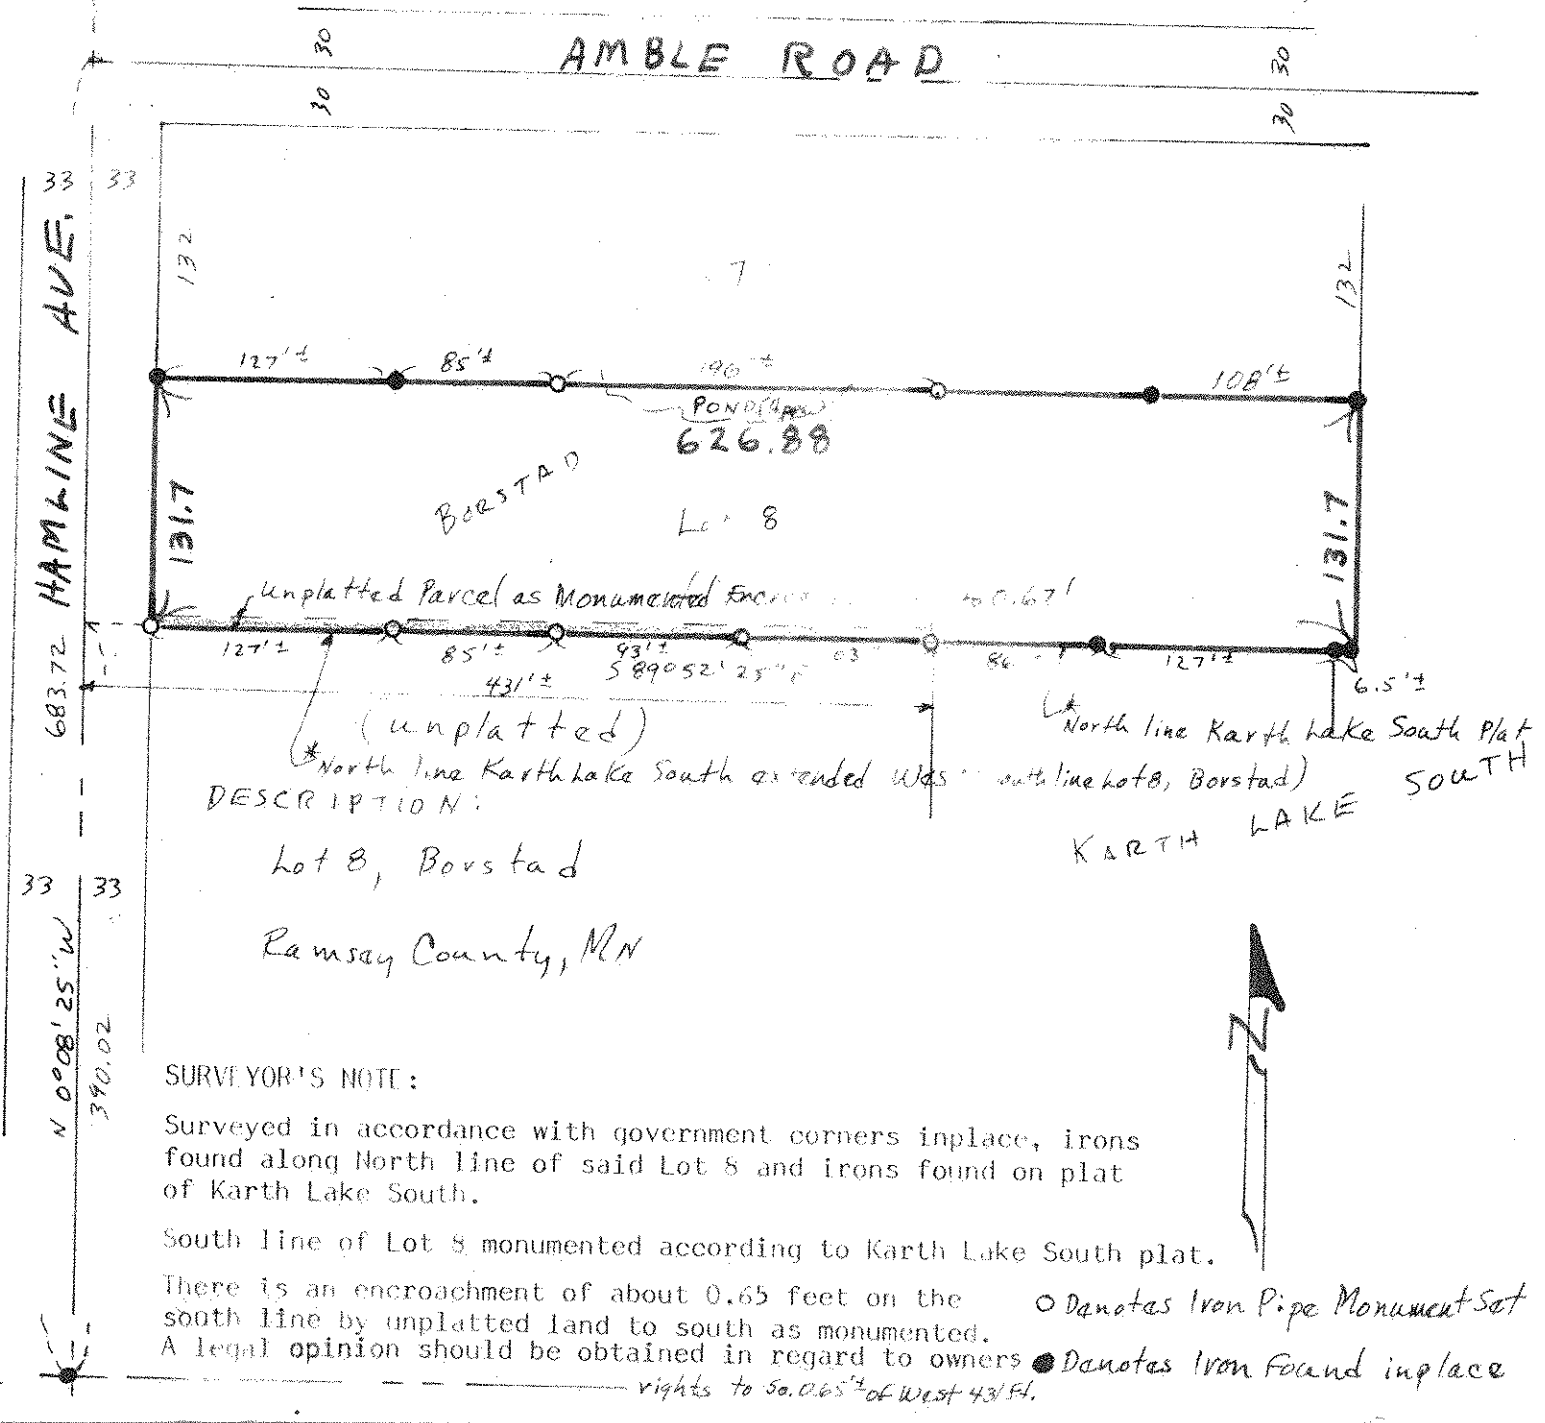 30
30
AMBLE ROAD
30
30
33
33
HAMLINE AVE.
132
132
7
127'±
85'±
190'±
108'±
POND
626.88
BORSTAD
131.7
131.7
8
Unplatted Parcel as Monumented
0.67'
127'±
85'±
93'±
127'±
6.5'±
431'±
683.72
(unplatted)
*North line Karth Lake South Plat
*North line Karth Lake South extended line Lot 8, Borstad)
KARTH LAKE SOUTH
DESCRIPTION:
Lot 8, Borstad
Ramsey County, MN
33
33
N 0°08'25"W
390.02
N
SURVEYOR'S NOTE:
Surveyed in accordance with government corners inplace, irons
found along North line of said Lot 8 and irons found on plat
of Karth Lake South.
South line of Lot 8 monumented according to Karth Lake South plat.
There is an encroachment of about 0.65 feet on the
south line by unplatted land to south as monumented.
A legal opinion should be obtained in regard to owners
rights to So. 0.65'± of West 431 Ft.
O Denotes Iron Pipe Monument Set
● Denotes Iron Found inplace